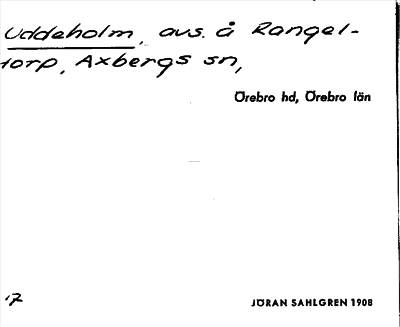 Uddeholm, avs. å Rangel-
torp, Axbergs sn,
Örebro hd, Örebro län
17
JÖRAN SAHLGREN 1908